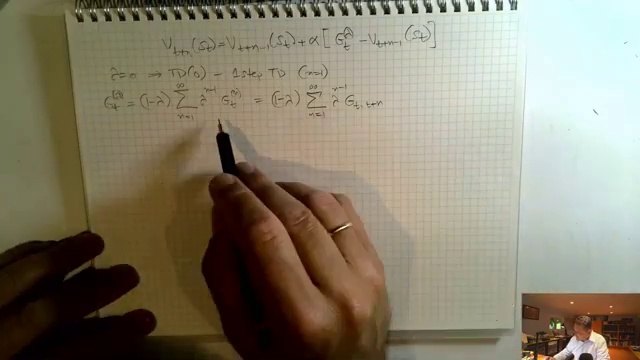 V_{t+n}(S_t) = V_{t+n-1}(S_t) + α[G_t^{(λ)} - V_{t+n-1}(S_t)]
λ=0 ⇒ TD(0) - 1 step TD (n=1)
G_t^{(λ)} = (1-λ) ∑_{n=1}^{∞} λ^{n-1} G_t^{(n)} = (1-λ) ∑_{n=1}^{∞} λ^{n-1} G_{t,t+n}